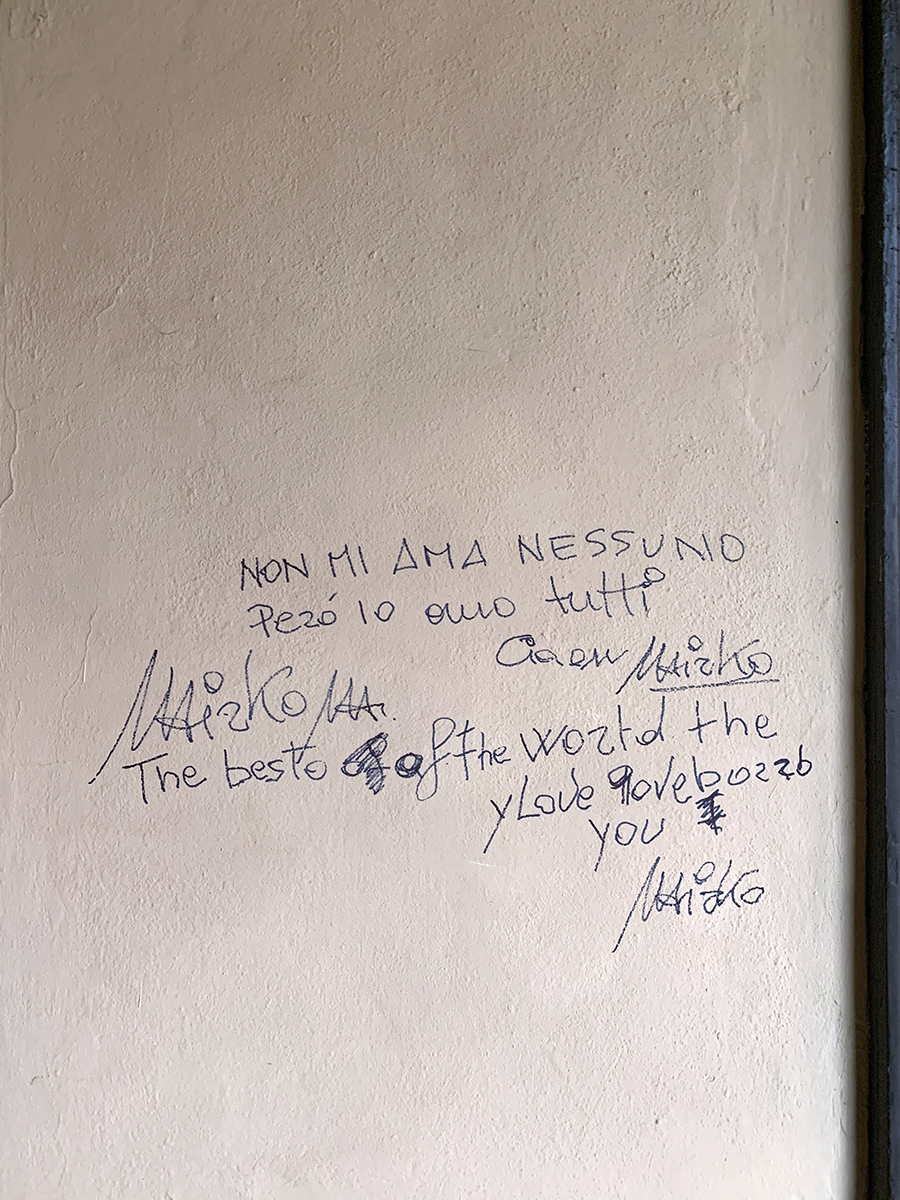 NON MI AMA NESSUNO
Però io amo tutti
Mirko
Mirko
The besto of the world the
y Love
you
Mirko